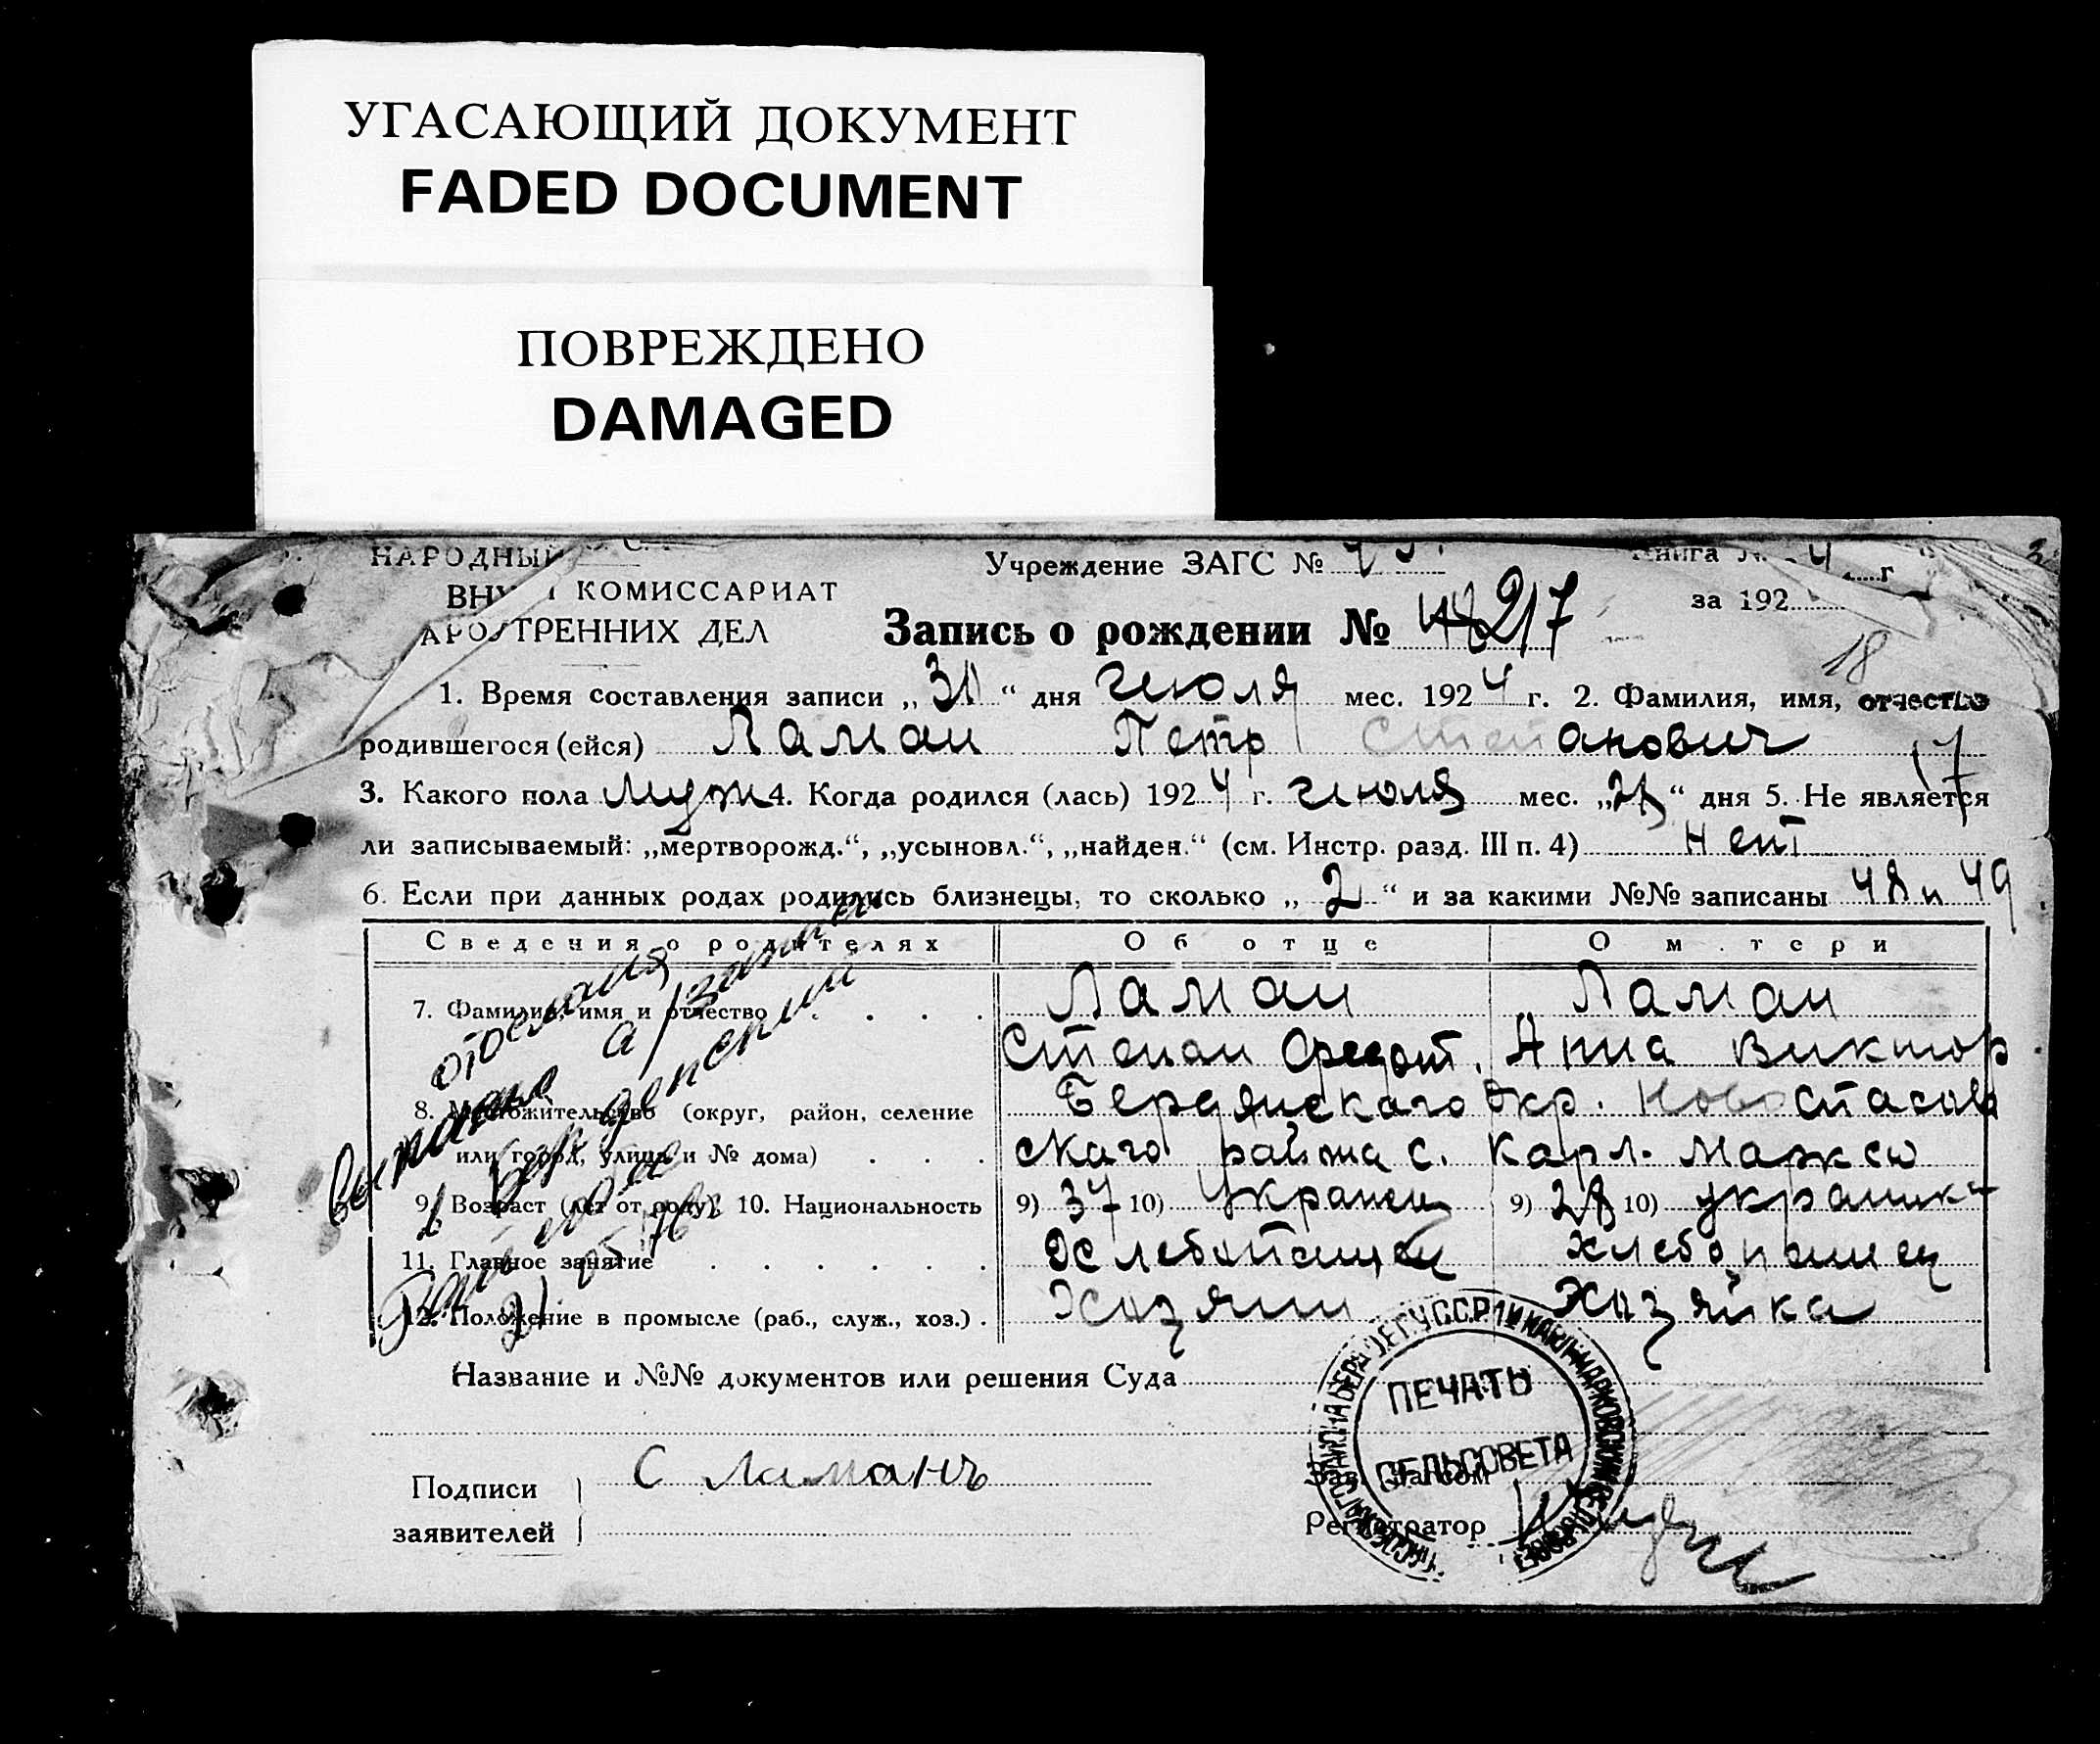 УГАСАЮЩИЙ ДОКУМЕНТ
FADED DOCUMENT
ПОВРЕЖДЕНО
DAMAGED
НАРОДНЫЙ
КОМИССАРИАТ
ТРЕННИХ ДЕЛ
Учреждение ЗАГС №
Книга №
за 192 г
Запись о рождении № 217
18
1. Время составления записи „30“ дня июля мес. 1924 г. 2. Фамилия, имя, отчество
родившегося (ейся) Ламан Петр Степанович
17
3. Какого пола муж 4. Когда родился (лась) 1924 г. июля мес. „ “ дня 5. Не является
ли записываемый: „мертворожд.“, „усыновл.“, „найден.“ (см. Инстр. разд. III п. 4) нет
6. Если при данных родах родились близнецы, то сколько „2“ и за какими №№ записаны 48 и 49
Сведения о родителях Об отце О м тери
7. Фамилия, имя и отчество Ламан Ламан
Степан Анна Виктор
8. Местожительство (округ, район, селение Бердянскаго Окр. Новоспасов
или город, улица и № дома) скаго района с. Карл. Маркса
9. Возраст (лет от роду), 10. Национальность 9) 37 10) 9) 28 10)
11. Главное занятие Хлебопашец хлебопашец
12. Положение в промысле (раб., служ., хоз.) Хозяин Хозяйка
Название и №№ документов или решения Суда
ПЕЧАТЬ
СЕЛЬСОВЕТА
Подписи
заявителей
С Ламанъ
Регистратор